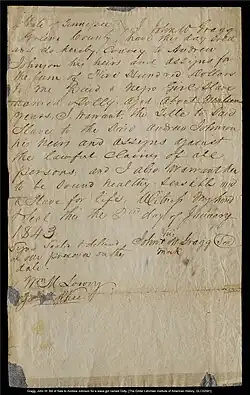 State of Tennessee I John W. Gragg
Greene County have this day Sold
and do hereby Convey to Andrew
Johnson his heirs and assigns for
the sum of Five Hundred Dollars
to me paid a Negro Girl Slave
named Dolly, Aged about
years, I warant the Title to Said
Slave to the Said Andrew Johnson
his heirs and assigns against
the lawful Claims of all
persons, and I also warant her
to be Sound healthy Sensible and
a Slave for life. Witness my hand
& Seal this the 2nd day of January
1843
his
John W Gragg Seal
mark
in our presence on the
date
Wm M Lowry
Gragg, John W. Bill of Sale to Andrew Johnson for a slave girl named Dolly. (The Gilder Lehrman Institute of American History,